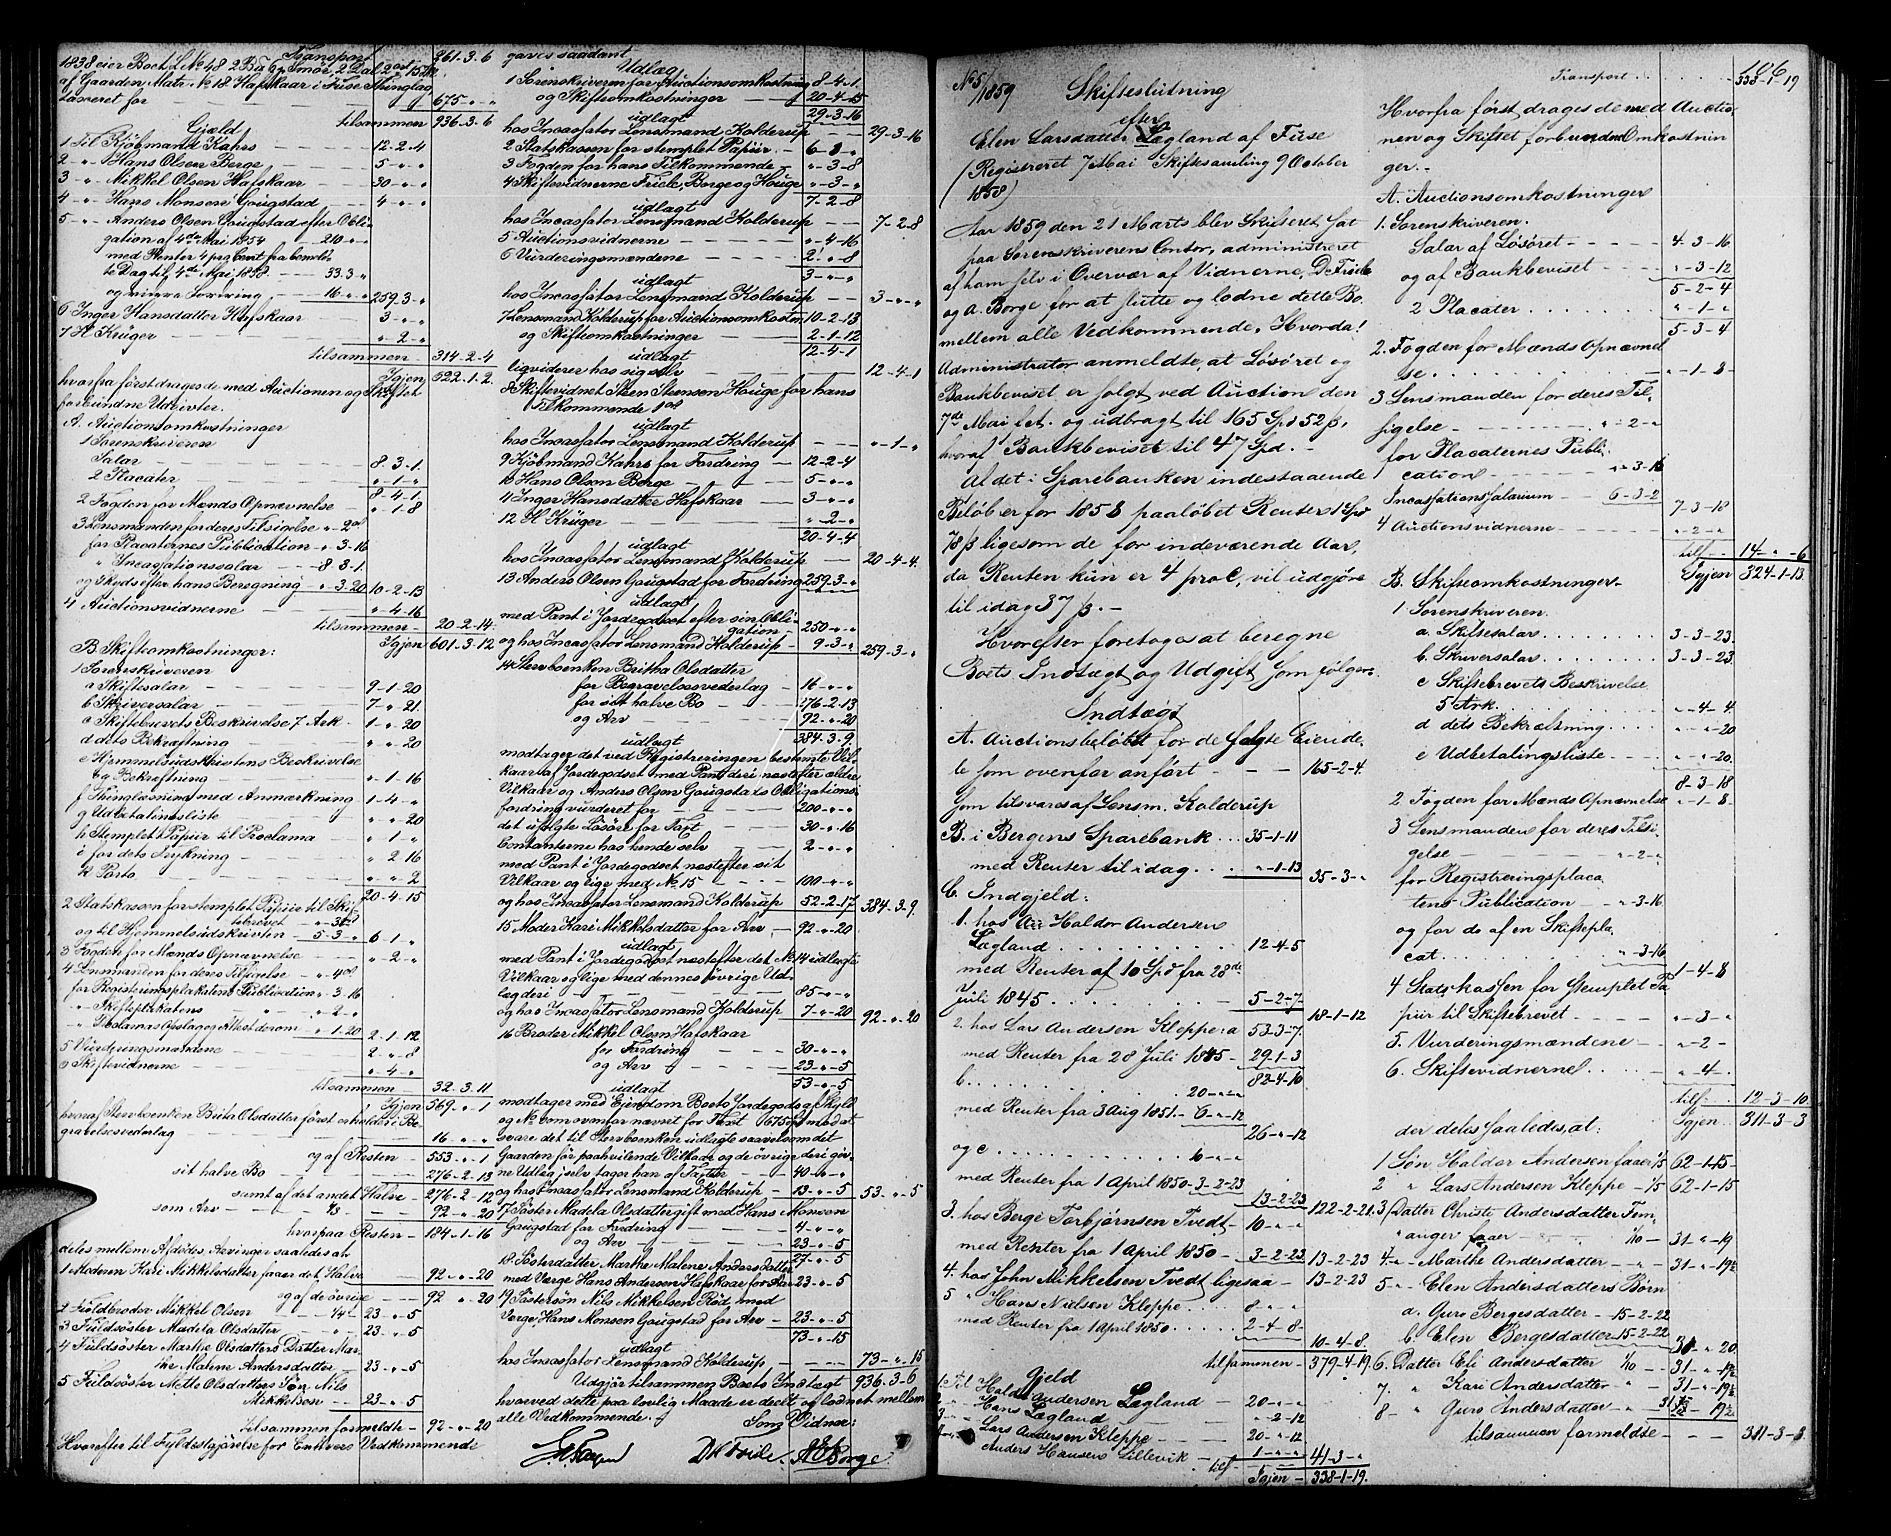 Transport 961-3-6
1838 eier Boet L No 48 2 Bd 6 Mrk Smør, 2 Dal. 2 ort 15 ß
af Gaarden Matr. No 18 Hafskaar i Fuse Thinglag
taxeret for 675-"-"
tilsammen 936-3-6
Gjæld
1 Til Kjøbmand Kahrs 12-2-4
2 -"- Hans Olsen Berge 5-"-"
3 -"- Mikkel Olsen Hafskaar 30-"-"
4 -"- Hans Monsen Gougstad 4-"-"
5 -"- Anders Olsen Gougstad efter Obli
gation af 4de Mai 1854 210-"-"
med Renter 4 pro Cent fra bemeldte
Dag til 4de Mai 1858 33-3-"
og videre Fordring 16-"-" 259-3-"
6 Inger Hansdatter Hafskaar 3-"-"
7 H Krüger "-2-"
tilsammen 314-2-4
Igjen 622-1-2
hvorfra først drages de med Auctionen og Skiftet
forbundne Udgivter.
A. Auctionsomkostninger
1 Sorenskriveren
Salar 8-3-1
2 Placater "-1-"
8-4-1
2 Fogden for Mænds Opnævnelse "-1-8
3 Lensmanden for deres Tilsigelse "-2-"
for Placaternes Publication "-3-16
" Incassationssalar 8-3-1
og Skyds efter hans Beregning "-3-20 10-2-13
4 Auctionsvidnerne "-4-16
tilsammen 20-2-14
Igjen 601-3-12
B. Skifteomkostninger:
1 Sorenskriveren
a Skiftesalar 9-1-20
b Skriversalar 7-"-21
c Skiftebrevets Beskrivelse 7 Ark 1-"-20
d dets Bekræftning "-"-20
e Hjemmelsudskriftens Beskrivelse
og Bekræftning "-1-16
f Thinglæsning med Anmærkning 1-4-"
g Udbetalingsliste "-"-20
h Stemplet Papiir til Proclama "-1-"
i for dets Trykning "-2-16
k Porto "-"-2
20-4-15
2 Statskassen for stemplet Papiir til Skif
tebrevet
og til Hjemmelsudskriften 5-3-" 6-1-"
3 Fogden for Mænds Opnævnelse "-2-"
4 Lensmanden for deres Tilsigelse
for Registreringsplakatens Publication "-3-16
"- Skifteplakatens "-2-"
"- Proclamas Opslag og Attest derom "-1-20 2-1-12
5 Vurderingsmændene 2-"-8
6 Skiftevidnerne "-4-"
tilsammen 32-3-11
Igjen 569-"-1
hvoraf Stervboenken Brita Olsdatter først erholder i Be-
gravelsesvederlag 16-"-"
og af Resten 553-"-1
sit halve Bo 276-2-13
samt af det andet Halve 276-2-12
som Arv 1/3 92-"-20
hvorpaa Resten 184-1-16
deles mellem Afdødes Arvinger saaledes at
1 Moderen Kari Mikkelsdatter faaer det Halve 92-"-20
og af de øvrige 92-"-20
2 Fuldbroder Mikkel Olsen 1/4 23-"-5
3 Fuldsøster Madela Olsdatter " 23-"-5
4 Fuldsøster Marthe Olsdatters Datter Mar-
the Malene Andersdatter 23-"-5
5 Fuldsøster Mette Olsdatters Søn Nils
Mikkelsen 23-"-5
Tilsammen formeldte 92-"-20
Hvorefter til Fyldestgjørelse for Enhvers Vedkommende
gaves saadant
Udlæg
1 Sorenskriveren for Auctionsomkostning 8-4-1
og Skifteomkostninger 20-4-15
29-3-16
udlagt
hos Incassator Lensmand Kolderup 29-3-16
2 Statskassen for stemplet Papiir 6-1-"
3 Fogden for hans Tilkommende "-3-8
4 Skiftevidnerne Friele, Borge og Houge "-3-"
7-2-8
udlagt
hos Incassator Lensmand Kolderup 7-2-8
5 Auctionsvidnerne "-4-16
6 Vurderingsmændene 2-"-8
3-"-"
udlagt
hos Incassator Lensmand Kolderup 3-"-"
7 Lensmand Kolderup for Auctionsomkostn 10-2-13
og Skifteomkostninger 2-1-12
12-4-1
udlagt
ligviderer hos sig selv 12-4-1
8 Skiftevidnet Steen Steensen Houge for hans
Tilkommende 1 ort
udlagt
hos Incassator Lensmand Kolderup "-1-"
9 Kjøbmand Kahrs for Fordring 12-2-4
10 Hans Olsen Berge 5-"-"
11 Inger Hansdatter Hafskaar 3-"-"
12 H Krüger "-2-"
20-4-4
udlagt
hos Incassator Lensmand Kolderup 20-4-4
13 Anders Olsen Gougstad for Fordring 259-3-"
udlagt
med Pant i Jordegodset efter sin Obli
gation 250-"-"
og hos Incassator Lensmand Kolderup 9-3-" 259-3-"
14 Stervboenken Britha Olsdatter
for Begravelsesvederlag 16-"-"
for sit halve Bo 276-2-13
og Arv 92-"-20
384-3-9
udlagt
modtager det ved Registreringen bestemte Vil-
kaar af Jordegodset med Pant deri næstefter ældre
Vilkaar og Anders Olsen Gougstads Obligations-
fordring vurderet for 200-"-"
det usolgte Løsøre for Taxt 30-"-16
Contanterne hos hende selv 2-"-"
med Pant i Jordegodset næstefter sit
Vilkaar og lige med No 15 100-"-"
og hos Incassator Lensmand Kolderup 52-2-17 384-3-9
15 Moder Kari Mikkelsdatter for Arv 92-"-20
udlagt
med Pant i Jordegodset næstefter det No 14 udlagte
Vilkaar og lige med dennes øvrige Ud-
læg deri 85-"-"
og hos Incassator Lensmand Kolderup 7-"-20 92-"-20
16 Broder Mikkel Olsen Hafskaar
for Fordring 30-"-"
og Arv 23-"-5
53-"-5
udlagt
modtager med Ejendom Boets Jordegods af Skyld
og No som ovenfor nævnt for Taxt 675 Spd mod at
svare det til Stervboenken udlagte saavelsom det
Gaarden før paahvilende Vilkaar og de øvrige deri giv-
ne Udlæg, selv tager han af Taxten 40-"-"
og hos Incassator Lensmand Kolderup 13-"-5 53-"-5
17 Søster Madela Olsdatter gift med Hans Monsen
Gougstad for Fordring 4-"-"
og Arv 23-"-5
27-"-5
18 Søsterdatter Marthe Malene Andersdatter
med Verge Hans Andersen Hafskaar for Arv 23-"-5
19 Søstersøn Nils Mikkelsen Rød med
Verge Hans Monsen Gougstad for Arv 23-"-5
73-"-15
udlagt
hos Incassator Lensmand Kolderup 73-"-15
Udgjør tilsammen Boets Indtægt 936-3-6
hvorved dette paa lovlig Maade er deelt og lodnet mellem
alle Vedkommende.
Som Vidner:
D Friele. A Borge
106
No 5/1859 Skifteslutning
efter
Elen Larsdatter Lægland af Fuse
(Registreret 7 Mai Skiftesamling 9 October
1858)
Aar 1859 den 21 Marts blev Skifteret sat
paa Sorenskriverens Contor, administreret
af ham selv i Overvær af Vidnerne, D. Friele
og A. Borge for at slutte og lodne dette Bo
mellem alle Vedkommende. Hvorda!
Administrator anmeldte, at Løsøret og
Bankbeviset er solgt ved Auction den
7de Mai f.A. og udbragt til 165 Spd 52 ß,
hvoraf Bankbeviset til 47 Spd.
Af det i Sparebanken indestaaende
Beløb er for 1858 paaløbet Renter 1 Spd
78 ß ligesom de for indeværende Aar,
da Renten kun er 4 pro C, vil udgjøre
til idag 37 ß. -
Hvorefter foretoges at beregne
Boets Indtægt og Udgift som følger.
Indtægt
A. Auctionsbeløbet for de solgte Eiende-
le som ovenfor anført 165-2-4
som tilsvares af Lensm. Kolderup
B. i Bergens Sparebank 35-1-11
med Renter til idag "-1-13
35-3-"
C. Indgjeld:
1. hos Haldor Andersen
Lægland 12-4-5
med Renter af 10 Spd fra 28de
Juli 1845 5-2-7
18-1-12
2. hos Lars Andersen Kleppe: a 53-3-7
med Renter fra 28 Juli 1845 29-1-3
82-4-10
b. 20-"-"
med Renter fra 3 Aug 1851 6-"-12
26-"-12
og c. 10-"-"
med Renter fra 1 April 1850 3-2-23
13-2-23 122-2-21
3. hos Berge Torbjørnsen Tvedt 10-"-"
med Renter fra 1 April 1850 3-2-23 13-2-23
4. hos John Mikkelsen Tvedt ligesaa 13-2-23
5 " Hans Nielsen Kleppe 8-"-"
med Renter fra 1 April 1850 2-4-8
10-4-8
tilsammen 379-4-19
Gjeld
1 Til Haldor Andersen Lægland 20-"-"
Hans Lægland "-2-12
Lars Andersen Kleppe 20-"-12
Anders Hansens Lillevik 1-"-"
tils 41-3-"
Igjen 338-1-19
Transport 338-1-19
Hvorfra først drages de med Auctio
nen og Skiftet forbundne Omkostnin
ger.
A. Auctionsomkostninger
1. Sorenskriveren.
Salar af Løsøret 4-3-16
og af Bankbeviset "-3-12
5-2-4
2 Placater "-1-"
5-3-4
2. Fogden for Mænds Opnævnel
se "-1-8
3 Lensmanden for deres Til-
sigelse "-2-"
for Placaternes Publi
cation "-3-16
Incassationssalarium 6-3-2
7-3-18
4 Auctionsvidnerne "-2-"
tils 14-"-6
Igjen 324-1-13
B. Skifteomkostninger
1 Sorenskriveren.
a. Skiftesalar 3-3-23
b. Skriversalar 3-3-23
c Skiftebrevets Beskrivelse
5 Ark "-4-4
d dets Bekræftning "-"-20
e Udbetalingsliste "-"-20
8-3-18
2 Fogden for Mænds Opnævnelse "-1-8
3 Lensmanden for deres Tilsi-
gelse "-2-"
for Registreringsplaca
tens Publication "-3-16
og for de af en Skiftepla
cat "-3-16
1-4-8
4 Statskassen for stemplet Pa
piir til Skiftebrevet "-3-"
5. Vurderingsmændene "-2-"
6. Skiftevidnerne "-4-"
tils 12-3-10
Igjen 311-3-3
der deles saaledes, at:
1 Søn Haldor Andersen faaer 1/5 62-1-15
2 " Lars Andersen Kleppe 1/5 62-1-15
3 Datter Christi Andersdatter Tem-
anger faaer 1/10 31-"-19
4 -"- Marthe Andersdatter 31-"-19½
5 -"- Elen Andersdatters Børn
a. Guro Bergesdatter 15-2-22
b. Elen Bergesdatter 15-2-22
31-"-20
6. Datter Eli Andersdatter 1/10 31-"-19½
7. " Kari Andersdatter " 31-"-19½
8 " Guro Andersdatter " 31-"-19½
tilsammen formeldte 311-3-3